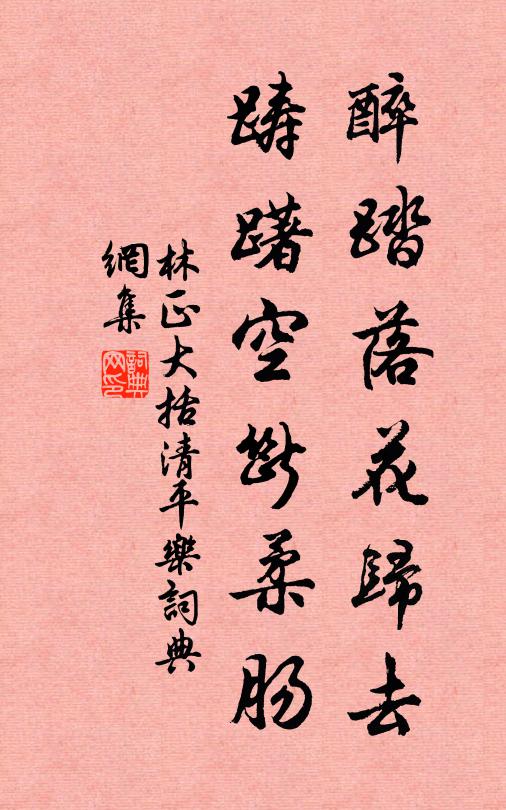 醉踏落花歸去
躊躇空斷柔腸
林正大括清平樂詞典
網集
詞典
网印